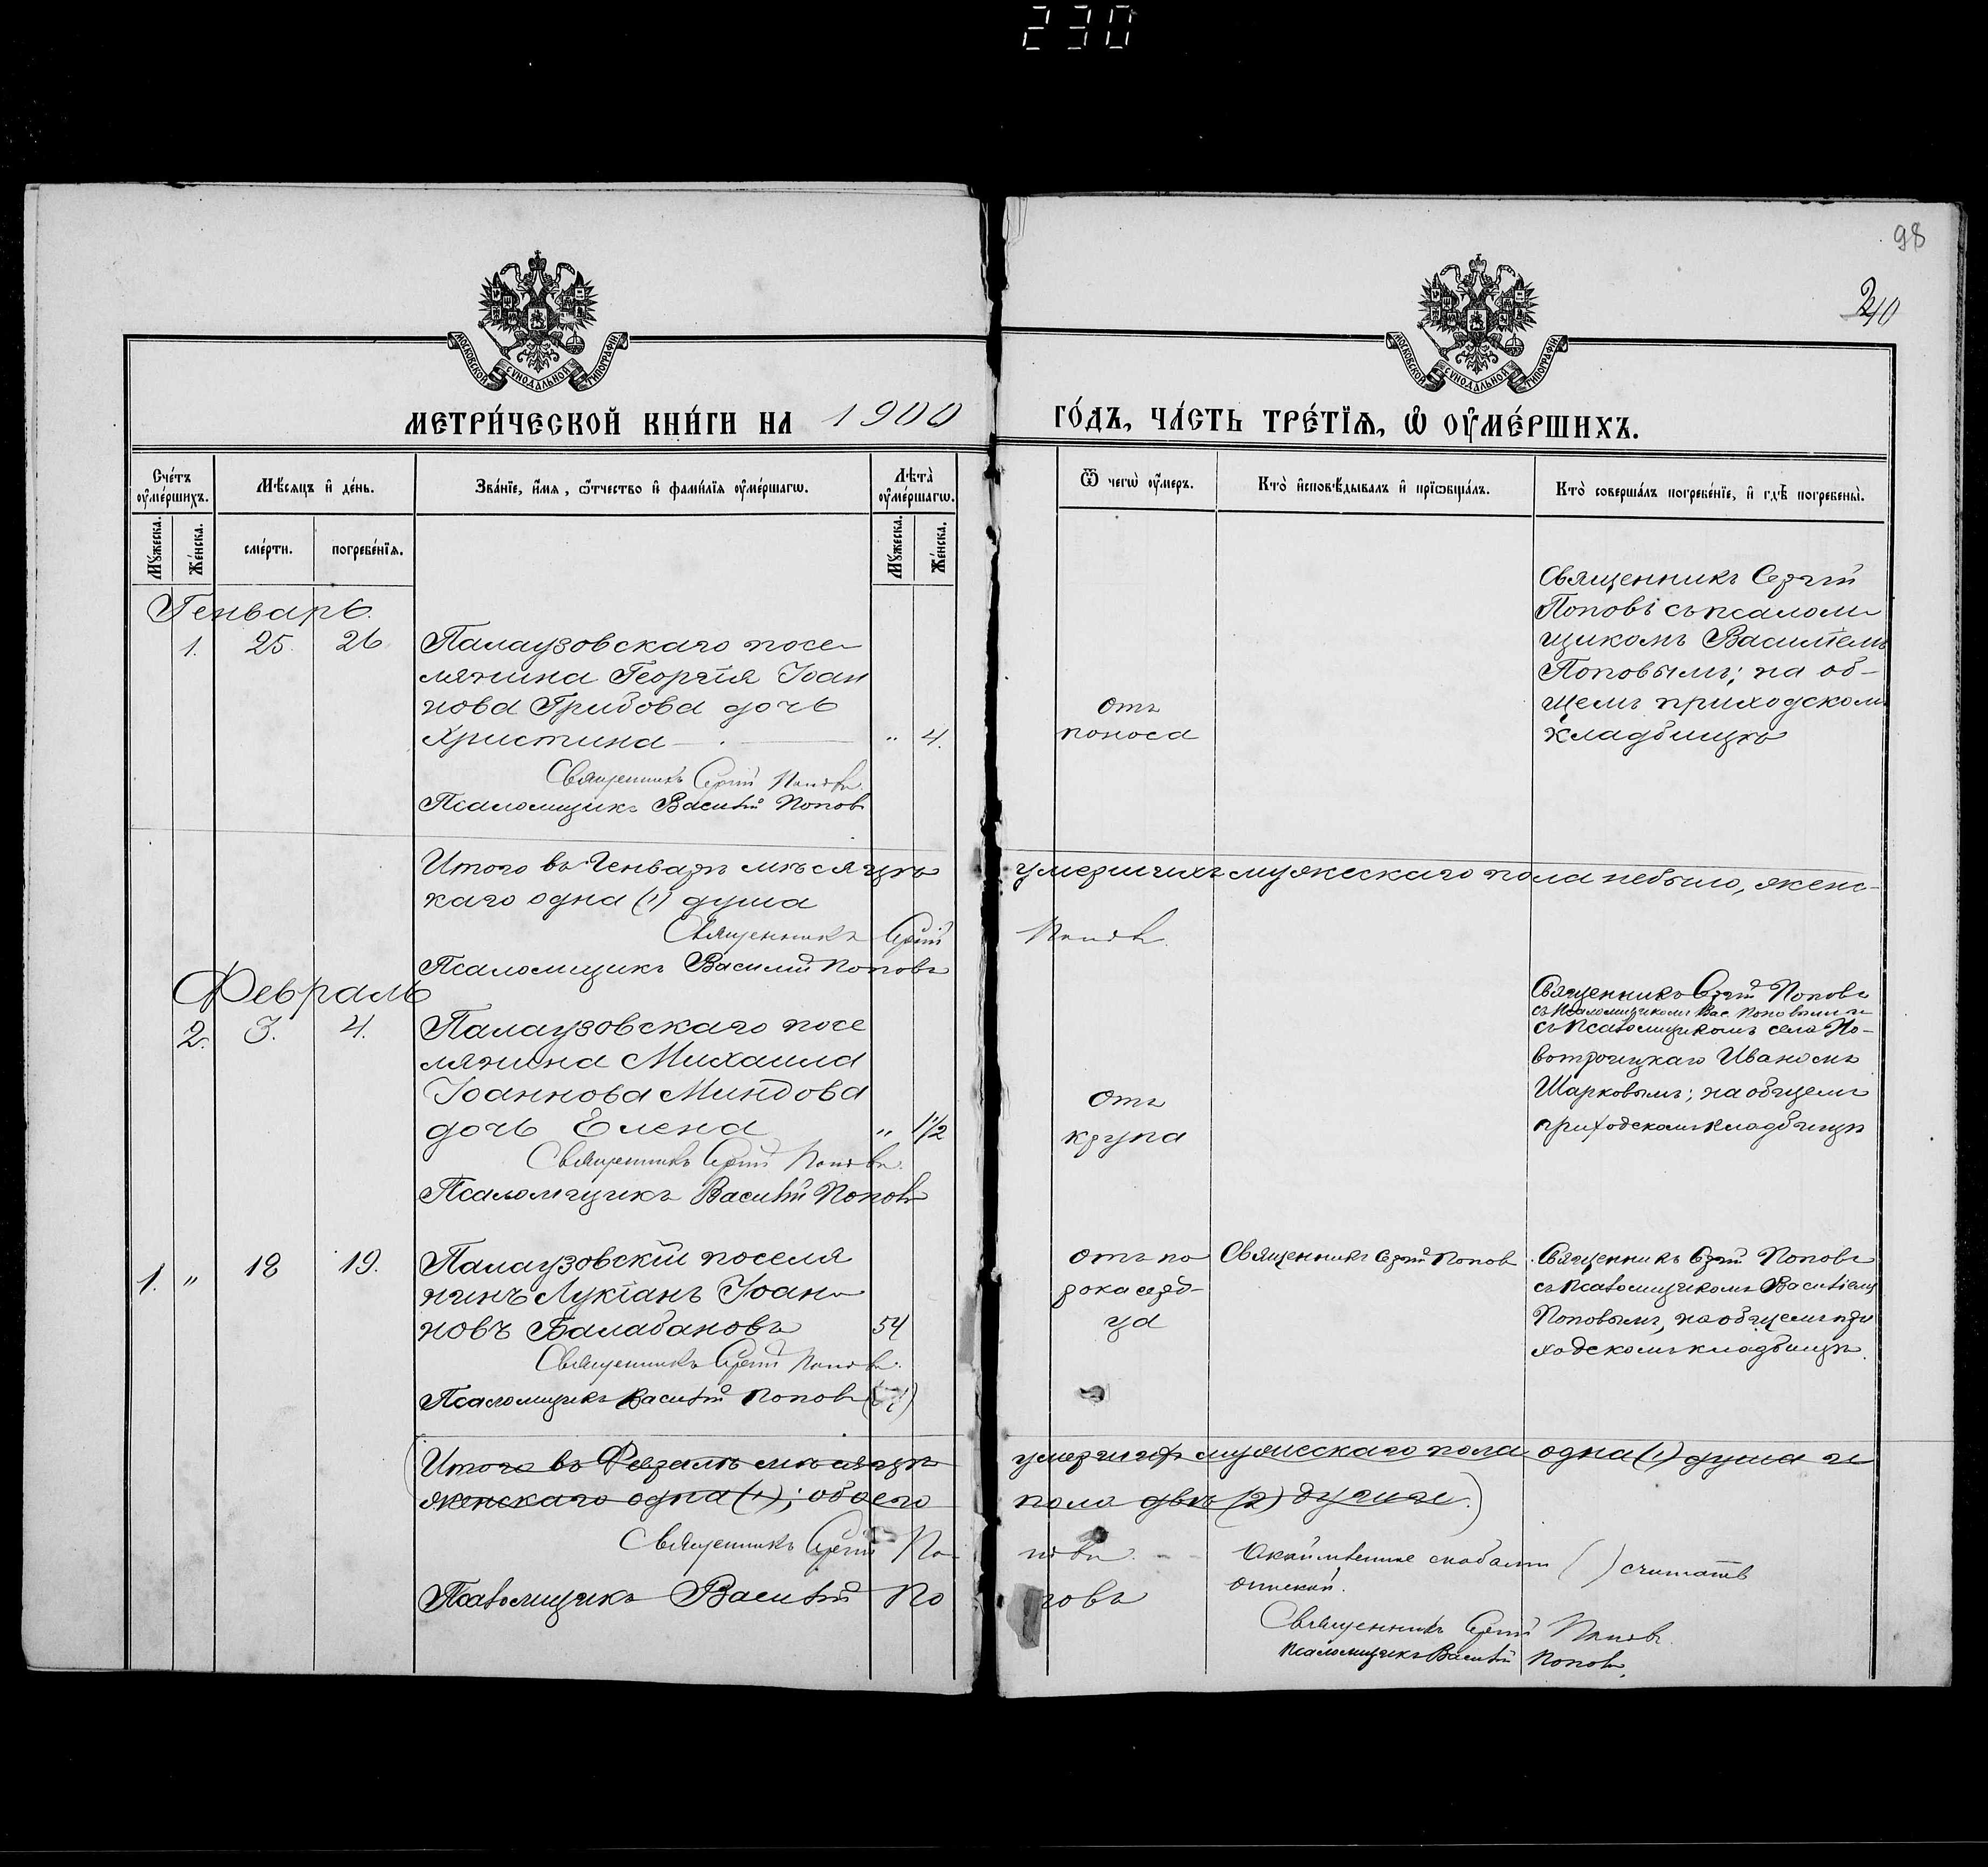 230
98
240
МОСКОВСКОЙ СѴНОДАЛЬНОЙ ТИПОГРАФІИ
МОСКОВСКОЙ СѴНОДАЛЬНОЙ ТИПОГРАФІИ
МЕТРИ́ЧЕСКОЙ КНИ́ГИ НА 1900 ГО́ДЪ, ЧА́СТЬ ТРЕ́ТЇѦ, Ѡ҆ ОУ҆МЕ́РШИХЪ.
Сче́тъ оу҆ме́ршихъ.
Мѣ́сяцъ и҆ де́нь.
Зва́нїе, и҆́мѧ, ѻ҆́тчество и҆ фами́лїѧ оу҆ме́ршагѡ.
Лѣта̀ оу҆ме́ршагѡ.
Ѿ чегѡ̀ оу҆́меръ.
Кто̀ и҆сповѣ́дывалъ и҆ прїѡбща́лъ.
Кто̀ соверша́лъ погребе́нїе, и҆ гдѣ̀ погребены̀.
Мꙋ́жеска.
Же́нска.
сме́рти.
погребе́нїѧ.
Мꙋ́жеска.
Же́нска.
Генварь.
1. 25. 26
Палаузовскаго посе-
лянина Георгія Іоан
нова Грибова дочь
Христина " 4.
Священникъ Сергій Поповъ.
Псаломщикъ Василій Попов
отъ
поноса
Священникъ Сергій
Поповъ съ псалом-
щикомъ Василіемъ
Поповымъ; на об-
щемъ приходскомъ
кладбищѣ
Итого въ Генварѣ мѣсяцѣ умершихъ мужескаго пола небыло, женс-
каго одна (1) душа
Священникъ Сергій Поповъ.
Псаломщикъ Василій Поповъ
Февраль
2. 3. 4.
Палаузовскаго посе
лянина Михаила
Іоаннова Миндова
дочь Елена " 1½
Священникъ Сергій Поповъ.
Псаломщикъ Василій Поповъ
Отъ
крупа
Священникъ Сергій Поповъ
съ Псаломщикомъ Вас. Поповымъ и
съ псаломщикомъ села Но-
вотроицкаго Иваномъ
Шарковымъ; на общемъ
приходскомъ кладбищѣ
1. " 18 19.
Палаузовскій поселя
нинъ Лукіанъ Іоан-
новъ Балабановъ 54
Священникъ Сергій Поповъ.
Псаломщикъ Василій Поповъ
отъ по
рока серд-
ца
Священникъ Сергій Попов
Священникъ Сергій Поповъ
съ псаломщикомъ Василіемъ
Поповымъ, на общемъ при
ходскомъ кладбищѣ.
(Итого въ Февралѣ мѣсяцѣ умершихъ мужескаго пола одна (1) душа и
женскаго одна (1); обоего пола двѣ (2) души.)
Священникъ Сергій Поповъ.
Псаломщикъ Василій Поповъ
скобами ( ) считать
опиской.
Священникъ Сергій Поповъ.
Псаломщикъ Василій Поповъ.